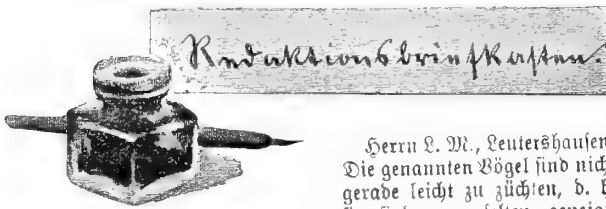 Redaktionsbriefkasten.
Herrn L. M., Leutershausen
Die genannten Vögel sind nich
gerade leicht zu züchten, d. h